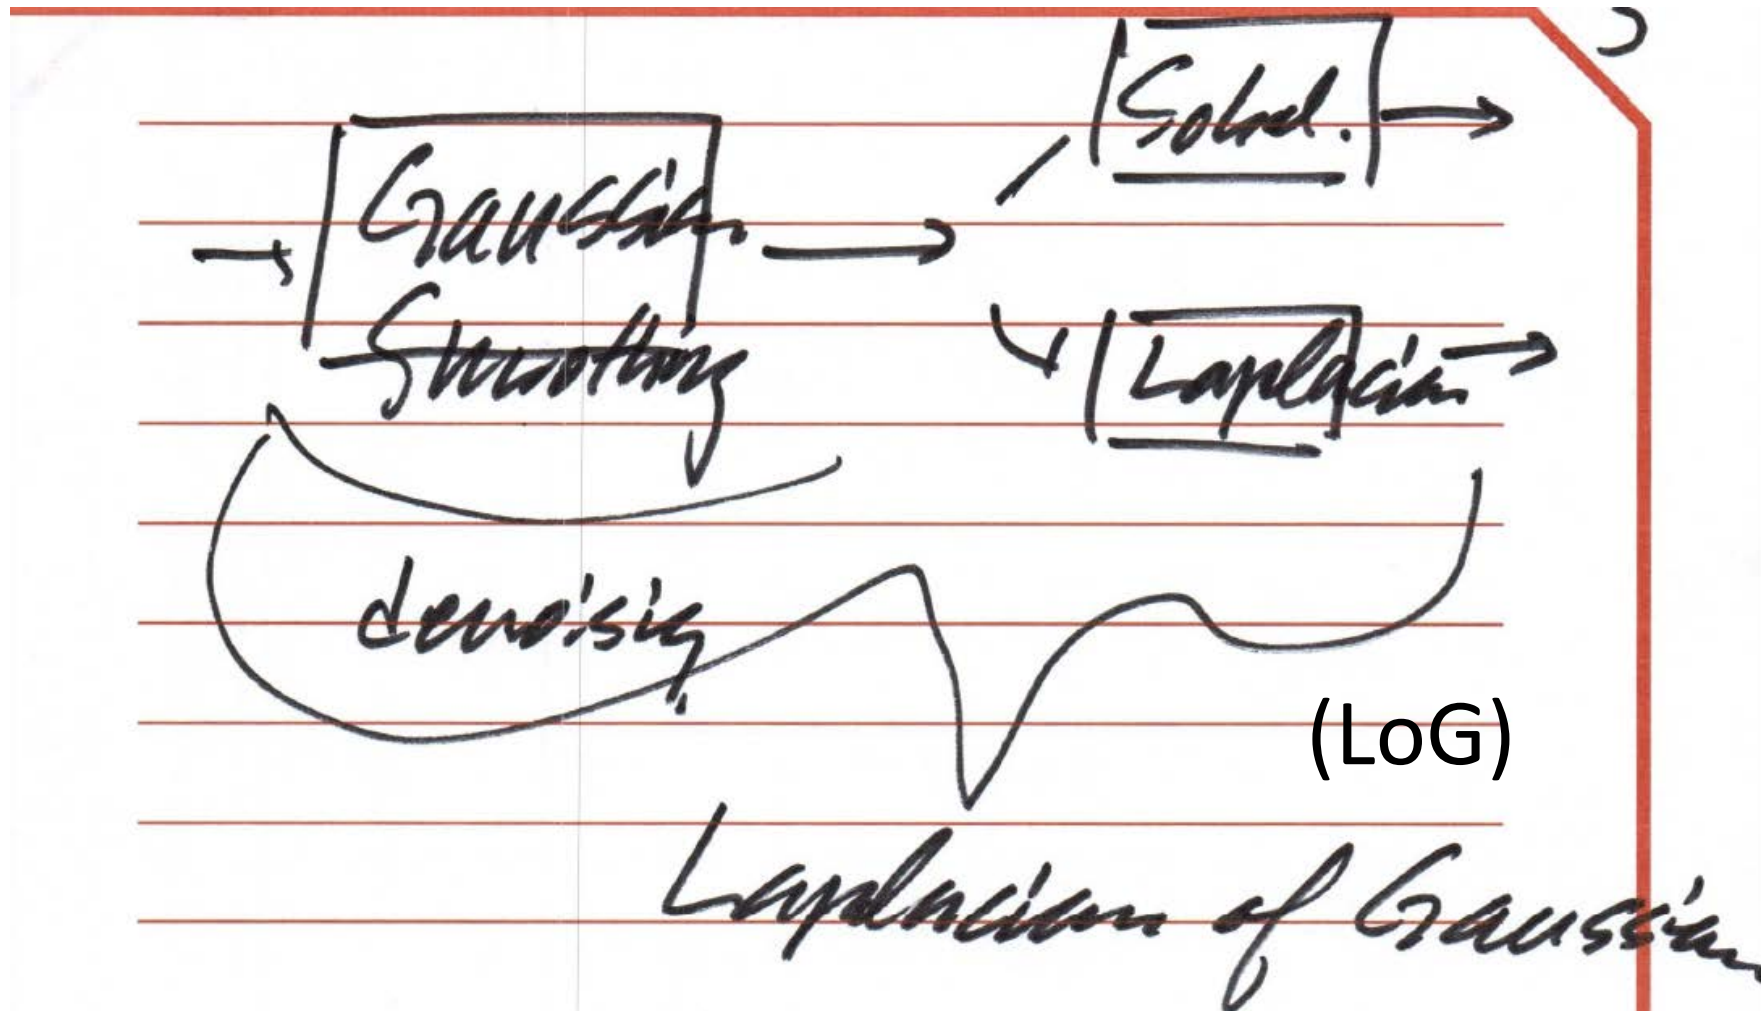 Sobel.
Gaussian
Smoothing
Laplacian
denoising
(LoG)
Laplacian of Gaussian